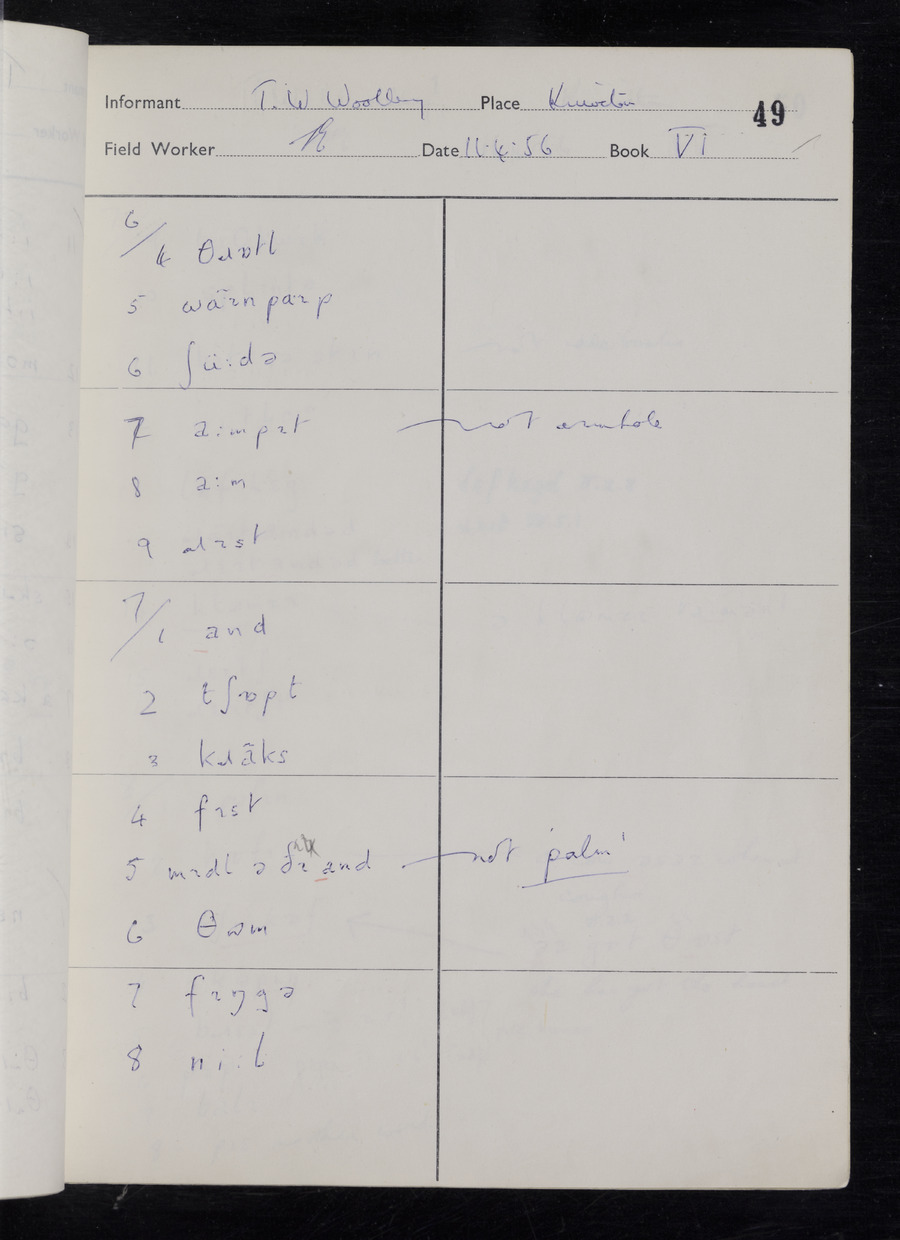 Informant T. W Woolley Place Kniveton 49
Field Worker Date 11·4·56 Book VI
6/4 θɹɒtl
5
6 ʃü:də
7 a:mpɪt — not armhole
8 a:m
9 ɹɪst
7/1 and
2 tʃɒpt
3 kɹäks
4 fɪst
5 mɪdl ə ðɪ and — not 'palm'
6 θɒm
7 fɪŋgə
8 ni:l